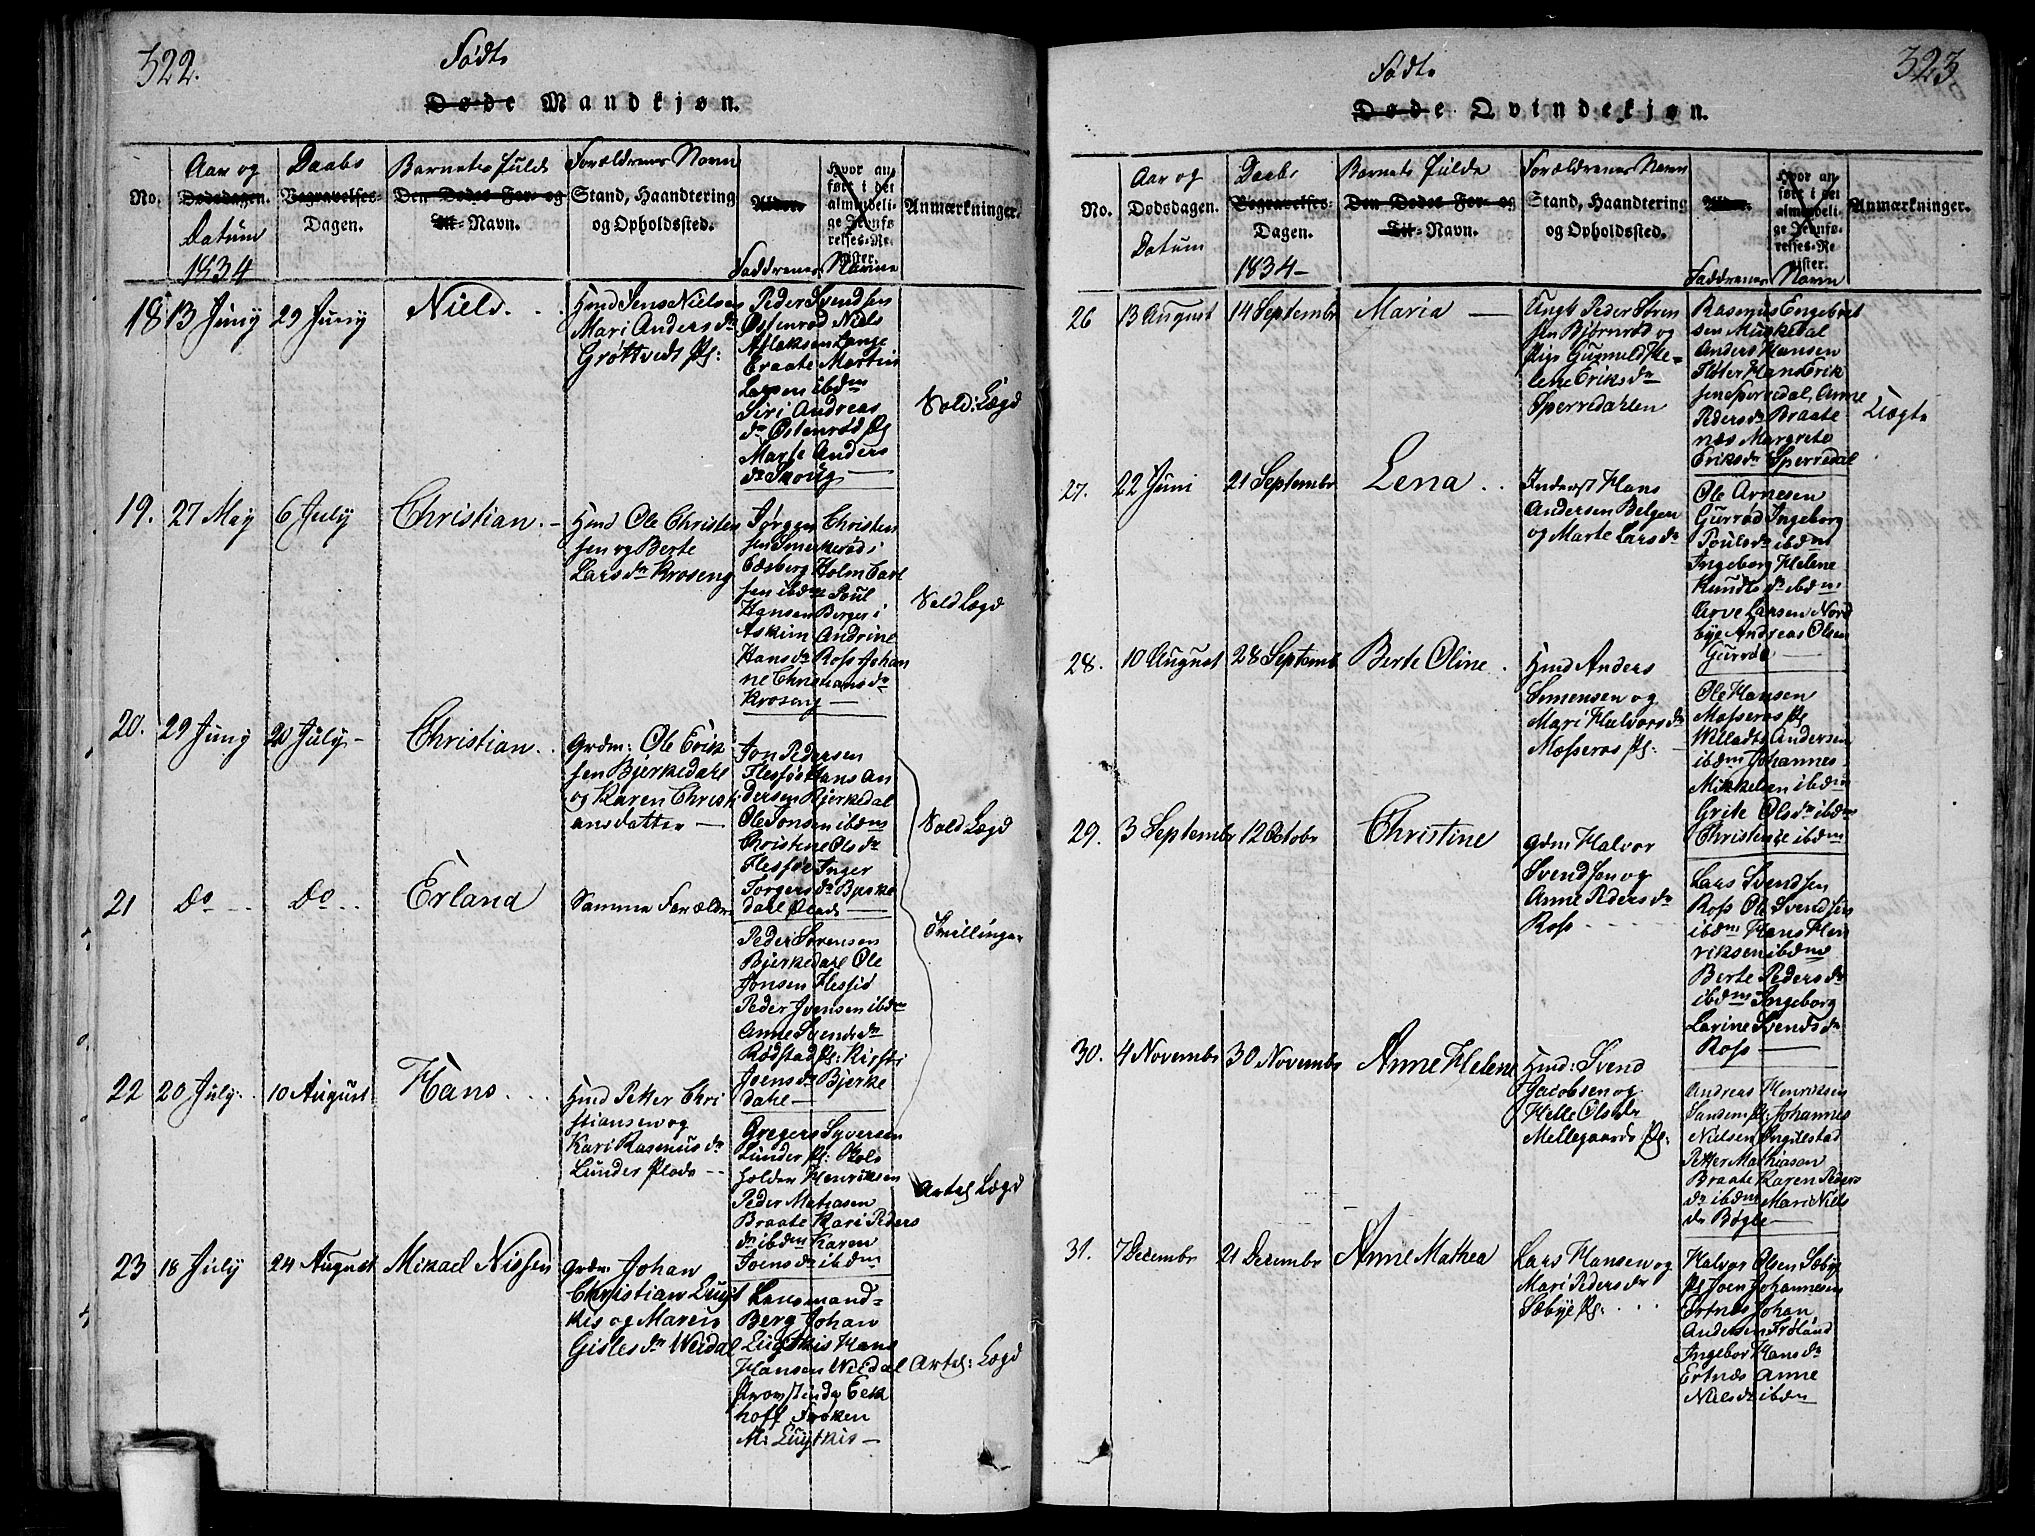 322.
Født
Døde Mandkjøn.
No.
Aar og
Dødsdagen.
Datum
1834
Daabs
Begravelses-
Dagen.
Barnets fulde
Den Dødes For- og
Til-Navn.
Forældrenes Navn
Stand, Haandtering
og Opholdssted.
Alder.
Faddrenes Navne
Hvor an
ført i det
almindeli-
ge Jevnfø-
relses-Re-
gister.
Anmærkninger.
18 13 Juny 29 Juny Niels. . .
Hmd Jens Nielsen
Mari Andersdr
Grøttvedt Pl:
Peder Svendsen
Østenrød Niels
Aslaksen Lange
Braate Martin
Larsen ibdm
Siri Andreas
dr Østenrød Pl
Marte Anders
dr Skoug
Vold: Lægd
19. 27 May 6 July Christian. –
Hmd Ole Christen
sen og Berte
Larsdr Kroseng
Jørgen Christen
sen Smerkerød i
Edsberg Holm Carl
sen ibdm Poul
Hansen Berger i
Askim Andrine
Hansdr Ross Johan
ne Christiansdr
Kroseng
Vold Lægd
20. 29 Juny 20 July – Christian. .
Grdm: Ole Erik
sen Bjerkedahl
og Karen Christi
ansdatter –
Jon Pedersen
Flesjøe Hans An
dersen Bjerkedal
Ole Jonsen ibdm
Christine Olsdr
Flesjøe Inger
Torgersdr Bjerke
dahl Plads
Vold Lægd
21 Do – – Do . . Erland
Samme Forældre
Peder Sørensen
Bjerkedahl Ole
Jonsen Flesjø
Peder Jvensen ibdm
Anne Svendsdr
Rødstad Pl: Kirsti
Joensdr Bjerke
dahl –
Tvillinger
22 20 July 10 August Hans . . .
Hmd Petter Chri
stiansen og
Kari Rasmusdr
Lunder Plads – –
Gregers Syversen
Lunder Pl:
Holden Henriksen
Peder Matiasen
Braate Kari Peders
dr ibdm Karen
Joensdr ibdm
Artel Lægd
23 18 July 24 August Mikael Nissen
Grdm Johan
Christian Luyt
kis og Maren
Gislesdr Weidal
Lensmand
Berg Johan
Luytkis Hans
Hansen Weidal
Provstinde Eck
hoff Frøken
M: Luytkis –
Artel: Lægd
323
Født
Døde Qvindekjøn.
No.
Aar og
Dødsdagen.
Datum
Daabs
Begravelses-
Dagen.
1834 –
Barnets fulde
Den Dødes For- og
Til-Navn.
Forældrenes Navn
Stand, Haandtering
og Opholdssted.
Alder.
Faddrenes Navn
Hvor an
ført i det
almindeli-
ge Jevnfø-
relses-Re-
gister.
Anmærkninger.
26 13 August 14 Septembr Maria –
Ungk Peder Søren
sen Bjørnrød og
Pige Gunnild He-
lene Eriksdr
Sperredahlen
Rasmus Engebret
sen Muskedal
Anders Hansen
Tister Hans Erik
sen Sperredal, Anne
Pedersdr Braate
næs Margrete
Eriksdr Sperredal
Uægte
27. 22 Juni 21 Septembr Lena . .
Inderst Hans
Andersen Belgen
og Marte Larsdr
Ole Arnesen
Gurrød Ingeborg
Poulsdr ibdm
Ingeborg Helene
Knudtsdr ibdm
Arve Larsen Nord
bye Andreas Olsen
Gurrød
28. 10 August 28 Septemb Berte Oline .
Hmd Anders
Simensen og
Mari Halvorsdr
Mosseros Pl: –
Ole Hansen
Mosseros Pl
Willadts Andersen
ibdm Johannes
Mikkelsen ibdm
Grite Olsdr ibdm
Christense ibdm
29. 3 Septembr 12 Octobr Christine
Gdm Halvor
Svendsen og
Anne Pedersdr
Ross . . . .
Lars Svendsen
Ross Ole Svendsen
ibdm Hans Hen
riksen ibdm
Berte Pedersdr
ibdm Ingeborg
Larine Svendsdr
Ross
30. 4 Novembr 30 Novembr Anne Helene
Hmd: Svend
Jacobsen og
Helle Olsdr
Mellegaards Pl:
Andreas Henriksen
Pl: Johannes
Nielsen Ingilstad
Petter Mathiasen
Braate Karen Peders
dr ibdm Mari Niels
dr Bøgle
31. 7 Decembr 21 Decembr Anne Mathea
Lars Hansen og
Mari Pedersdr
Sæbye Pl: . . .
Halvor Olsen Sæbye
Pl Joen Johannesen
Ertnes Johan
Andersen Frøland
Ingebor Hansdr
Ertnæs Anne
Nielsdr ibdm